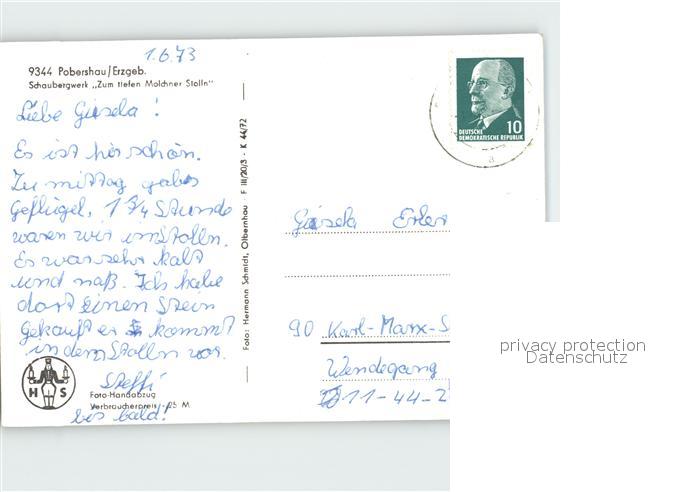 1.6.73
9344 Pobershau/Erzgeb.
Schaubergwerk „Zum tiefen Molchner Stolln"
Liebe Gisela!
Es ist hier schön.
Zu mittag gabes
Geflügel. 1 3/4 Stunde
waren wir im Stolln.
Es war sehr kalt
und naß. Ich habe
dort einen Stein
gekauft er kommt
in dem Stolln vor.
Steffi
bis bald!
H S
Foto-Handabzug
Verbraucherpreis -,25 M
Foto: Hermann Schmidt, Olbernhau · F III/20/3 · K 44/72
DEUTSCHE
DEMOKRATISCHE REPUBLIK
10
Gisela Erler
90 Karl-Marx-S
Wendegang
11-44-2
privacy protection
Datenschutz